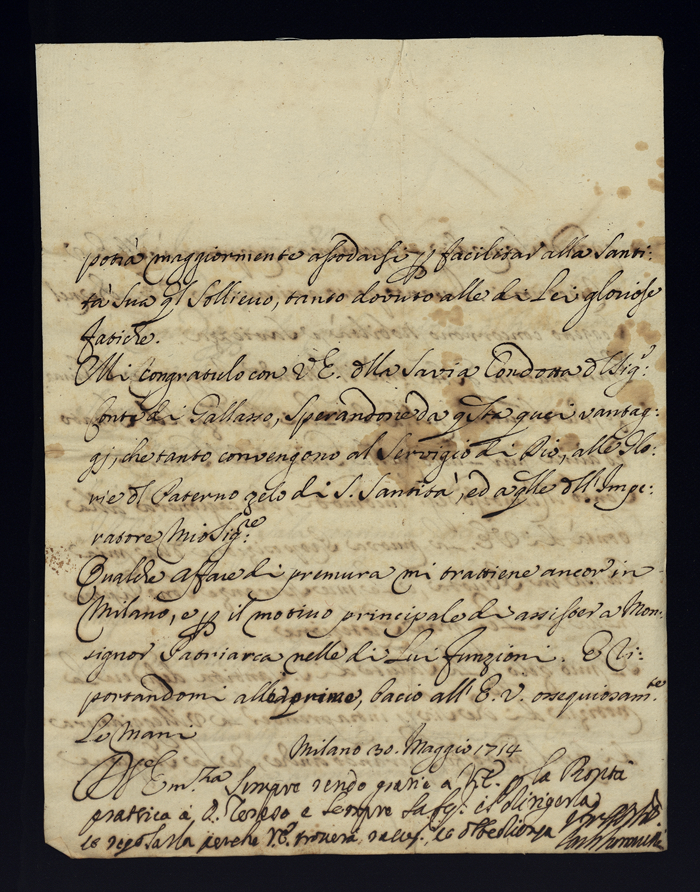 potrà maggiormente assodarsi p facilitar alla Santi:
tà Sua ql Sollieuo, tanto dovuto alle di Lei gloriose
fatiche.
Mi congratulo con V.E. dlla Savia Condotta dl Sigr:
Conte di Gallasso, Sperandone da qsta quei vantag:
gj, che tanto convengono al Servigio di Dio, alle Glo:
rie dl Paterno zelo di S. Santità, ed a qlle dll' Impe:
ratore Mio Sigre
Qualche affare di premura mi trattiene ancor in
Milano, e p il motivo principale di assister a Mon:
signor Patriarca nelle di Lui funzioni. E Ri:
portandomi alle prime, bacio all' E. V. ossequiosamte
Le Mani
Milano 30. Maggio 1714
Emza Sempre rendo grazie a V.E. p la
prattica e sempre
perche V.E. troverà